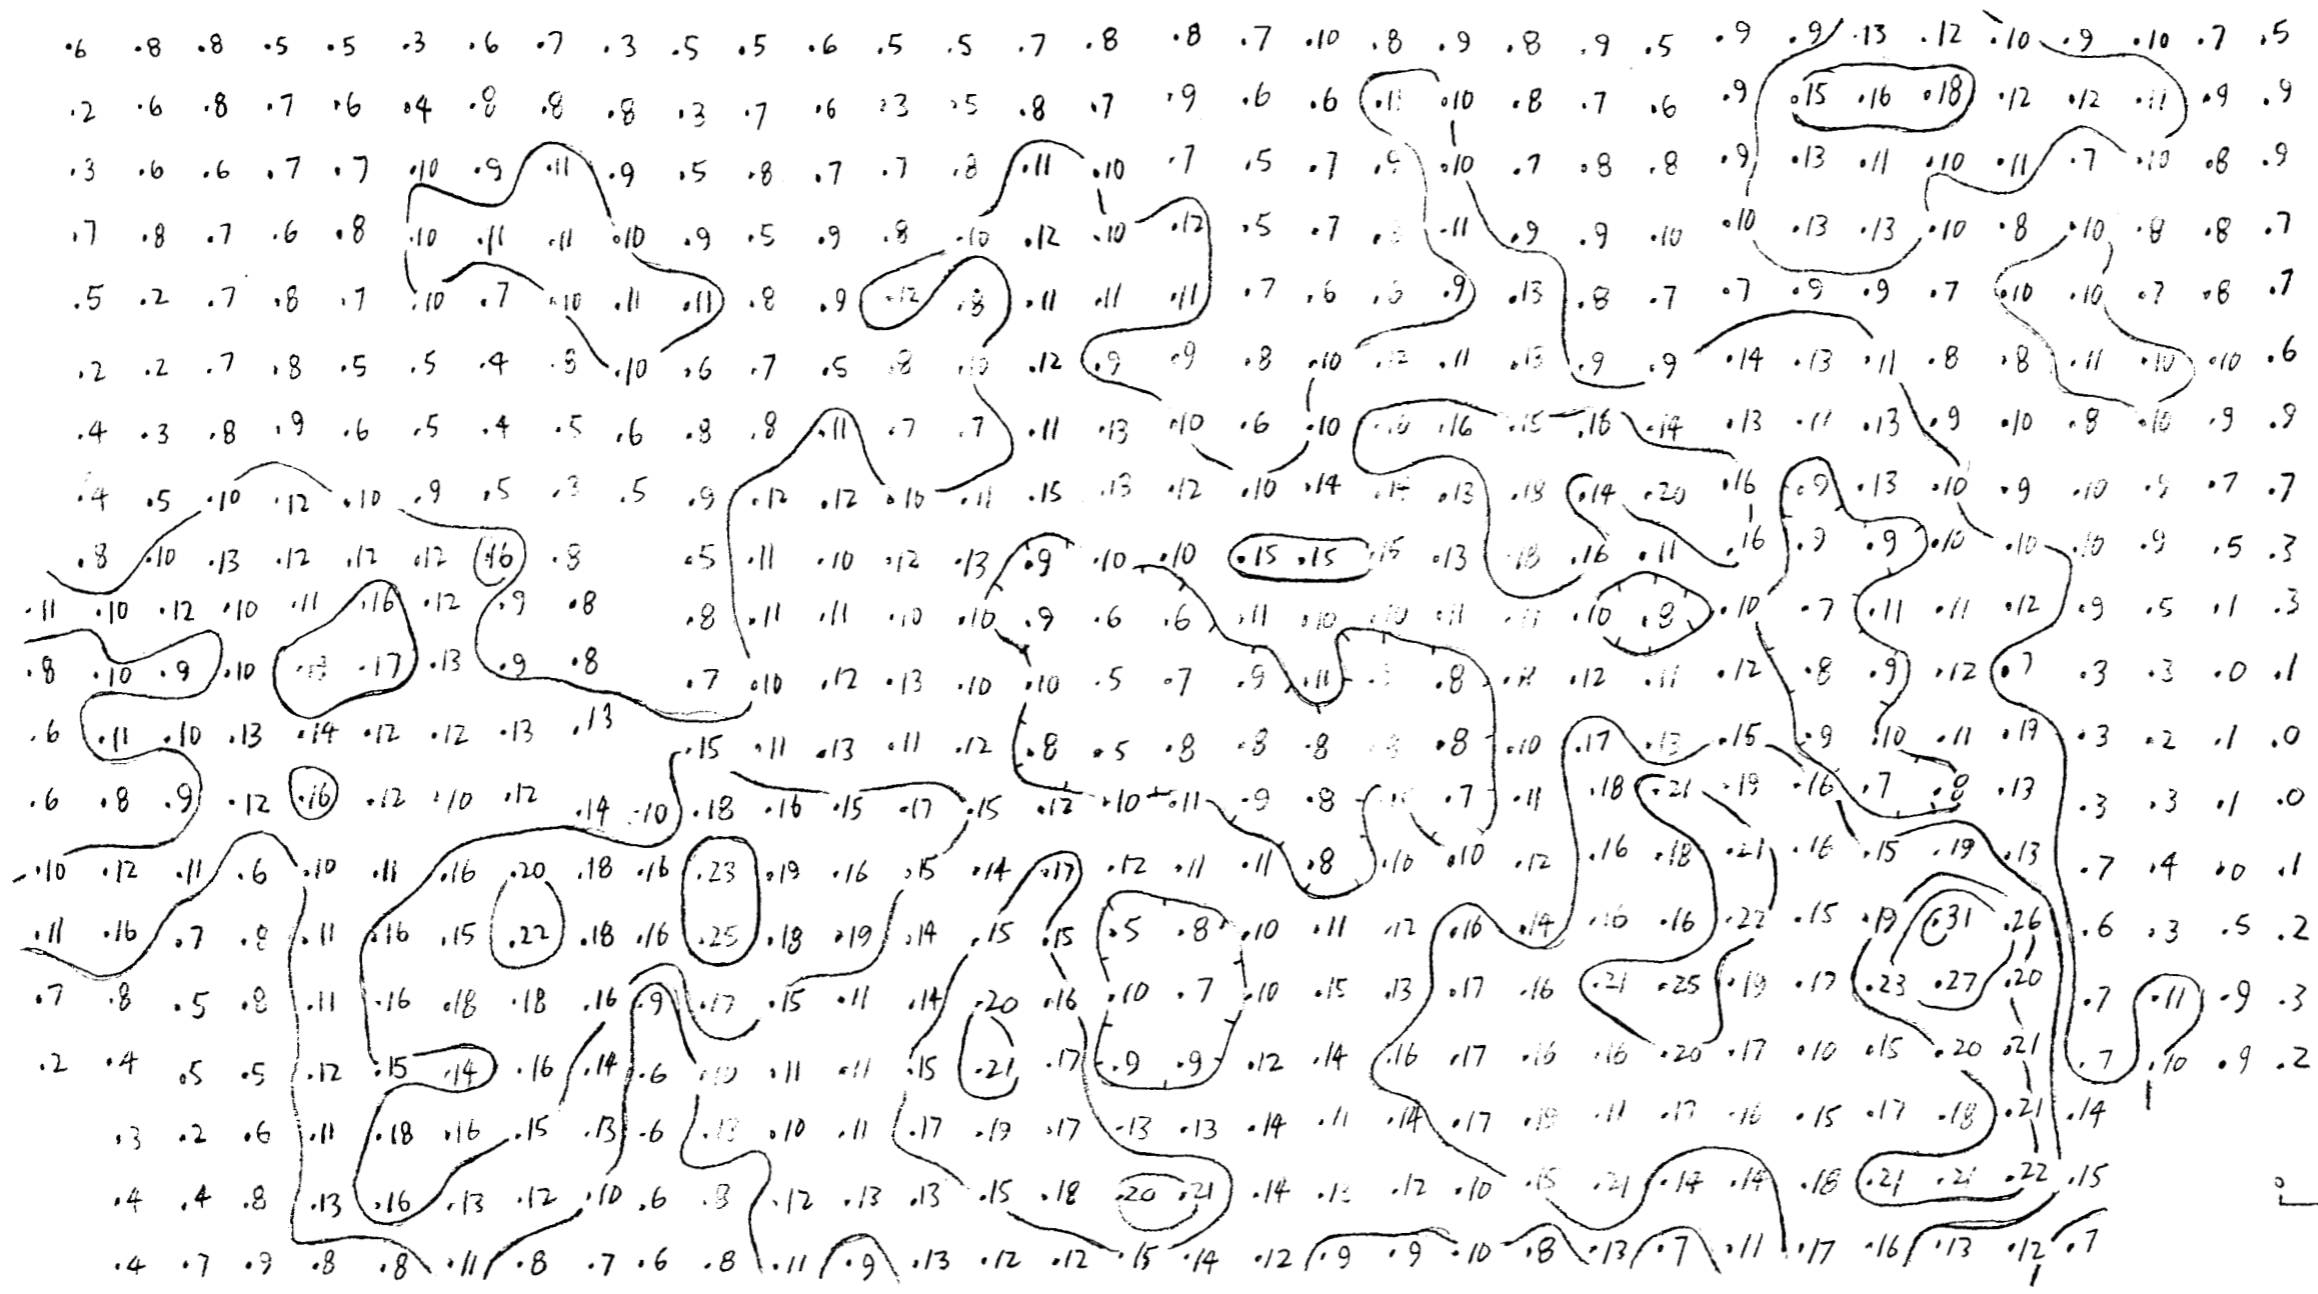 .6 .8 .8 .5 .5 .3 .6 .7 .3 .5 .5 .6 .5 .5 .7 .8 .8 .7 .10 .8 .9 .8 .9 .5 .9 .9 .13 .12 .10 .9 .10 .7 .5
.2 .6 .8 .7 .6 .4 .8 .8 .8 .3 .7 .6 .3 .5 .8 .7 .9 .6 .6 .11 .10 .8 .7 .6 .9 .15 .16 .18 .12 .12 .11 .9 .9
.3 .6 .6 .7 .7 .10 .9 .11 .9 .5 .8 .7 .7 .8 .11 .10 .7 .5 .7 .9 .10 .7 .8 .8 .9 .13 .11 .10 .11 .7 .10 .8 .9
.7 .8 .7 .6 .8 .10 .11 .11 .10 .9 .5 .9 .8 .10 .12 .10 .12 .5 .7 .11 .9 .9 .10 .10 .13 .13 .10 .8 .10 .8 .8 .7
.5 .2 .7 .8 .7 .10 .7 .10 .11 .11 .8 .9 .12 .8 .11 .11 .11 .7 .6 .6 .9 .13 .8 .7 .7 .9 .9 .7 .10 .10 .7 .8 .7
.2 .2 .7 .8 .5 .5 .4 .8 .10 .6 .7 .5 .8 .10 .12 .9 .9 .8 .10 .12 .11 .13 .9 .9 .14 .13 .11 .8 .8 .11 .10 .10 .6
.4 .3 .8 .9 .6 .5 .4 .5 .6 .8 .8 .11 .7 .7 .11 .13 .10 .6 .10 .16 .16 .15 .16 .14 .13 .11 .13 .9 .10 .8 .10 .9 .9
.4 .5 .10 .12 .10 .9 .5 .3 .5 .9 .12 .12 .10 .11 .15 .13 .12 .10 .14 .14 .13 .18 .14 .20 .16 .9 .13 .10 .9 .10 .9 .7 .7
.8 .10 .13 .12 .12 .12 .16 .8 .5 .11 .10 .12 .13 .9 .10 .10 .15 .15 .15 .13 .18 .16 .11 .16 .9 .9 .10 .10 .10 .9 .5 .3
.11 .10 .12 .10 .11 .16 .12 .9 .8 .8 .11 .11 .10 .10 .9 .6 .6 .11 .10 .10 .11 .11 .10 .8 .10 .7 .11 .11 .12 .9 .5 .1 .3
.8 .10 .9 .10 .18 .17 .13 .9 .8 .7 .10 .12 .13 .10 .10 .5 .7 .9 .11 .8 .12 .11 .12 .8 .9 .12 .7 .3 .3 .0 .1
.6 .11 .10 .13 .14 .12 .12 .13 .13 .15 .11 .13 .11 .12 .8 .5 .8 .8 .8 .8 .10 .17 .13 .15 .9 .10 .11 .19 .3 .2 .1 .0
.6 .8 .9 .12 .16 .12 .10 .12 .14 .10 .18 .16 .15 .17 .15 .12 .10 .11 .9 .8 .7 .11 .18 .21 .19 .16 .7 .8 .13 .3 .3 .1 .0
.10 .12 .11 .6 .10 .11 .16 .20 .18 .16 .23 .19 .16 .15 .14 .17 .12 .11 .11 .8 .10 .10 .12 .16 .18 .21 .16 .15 .19 .13 .7 .4 .0 .1
.11 .16 .7 .8 .11 .16 .15 .22 .18 .16 .25 .18 .19 .14 .15 .15 .5 .8 .10 .11 .12 .16 .14 .16 .16 .22 .15 .19 .31 .26 .6 .3 .5 .2
.7 .8 .5 .8 .11 .16 .18 .18 .16 .9 .17 .15 .11 .14 .20 .16 .10 .7 .10 .15 .13 .17 .16 .21 .25 .19 .17 .23 .27 .20 .7 .11 .9 .3
.2 .4 .5 .5 .12 .15 .14 .16 .14 .6 .10 .11 .11 .15 .21 .17 .9 .9 .12 .14 .16 .17 .16 .16 .20 .17 .10 .15 .20 .21 .7 .10 .9 .2
.3 .2 .6 .11 .18 .16 .15 .13 .6 .13 .10 .11 .17 .19 .17 .13 .13 .14 .11 .14 .17 .18 .11 .17 .16 .15 .17 .18 .21 .14
.4 .4 .8 .13 .16 .13 .12 .10 .6 .8 .12 .13 .13 .15 .18 .20 .21 .14 .12 .10 .15 .21 .14 .14 .18 .21 .21 .22 .15
.4 .7 .9 .8 .8 .11 .8 .7 .6 .8 .11 .9 .13 .12 .12 .15 .14 .12 .9 .9 .10 .8 .13 .7 .11 .17 .16 .13 .12 .7